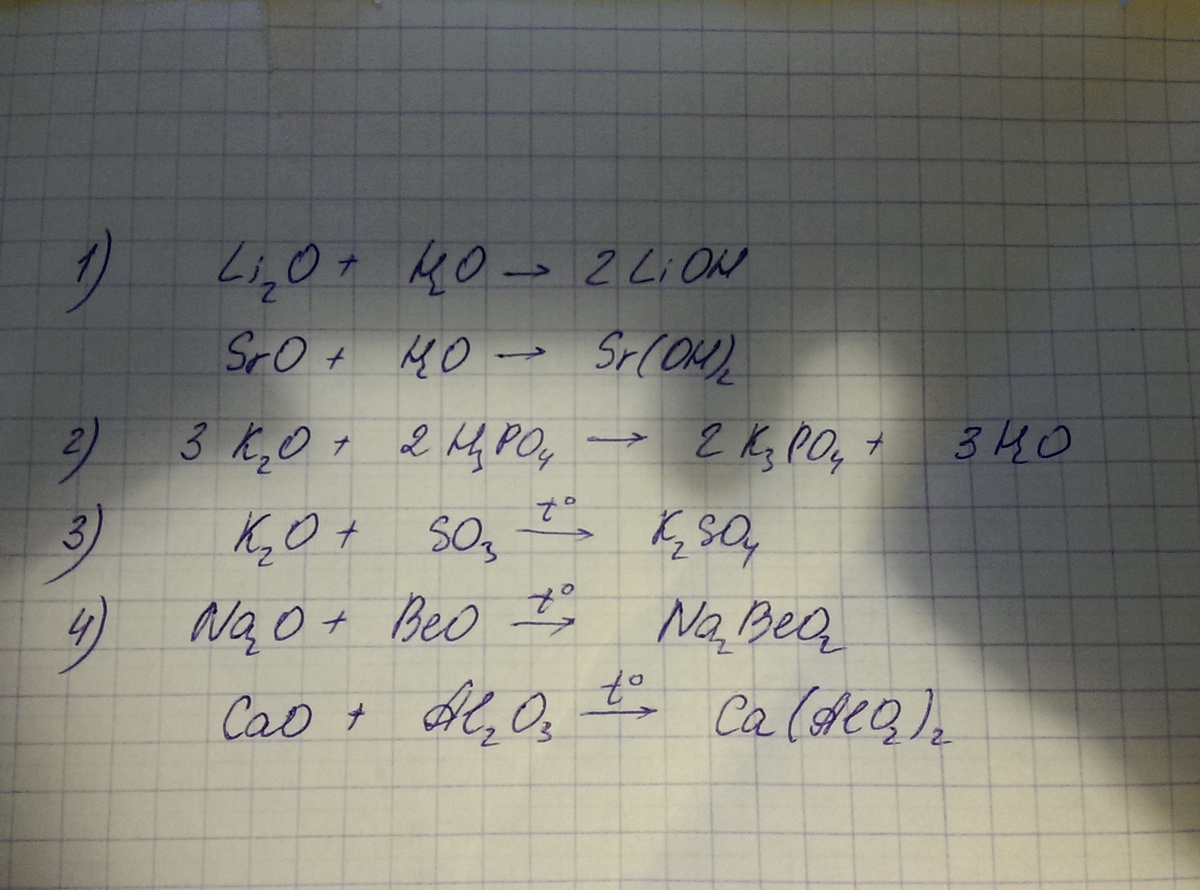 1) Li₂O + H₂O → 2 LiOH
SrO + H₂O → Sr(OH)₂
2) 3 K₂O + 2 H₃PO₄ → 2 K₃PO₄ + 3 H₂O
3) K₂O + SO₃ t° → K₂SO₄
4) Na₂O + BeO t° → Na₂BeO₂
CaO + Al₂O₃ t° → Ca(AlO₂)₂